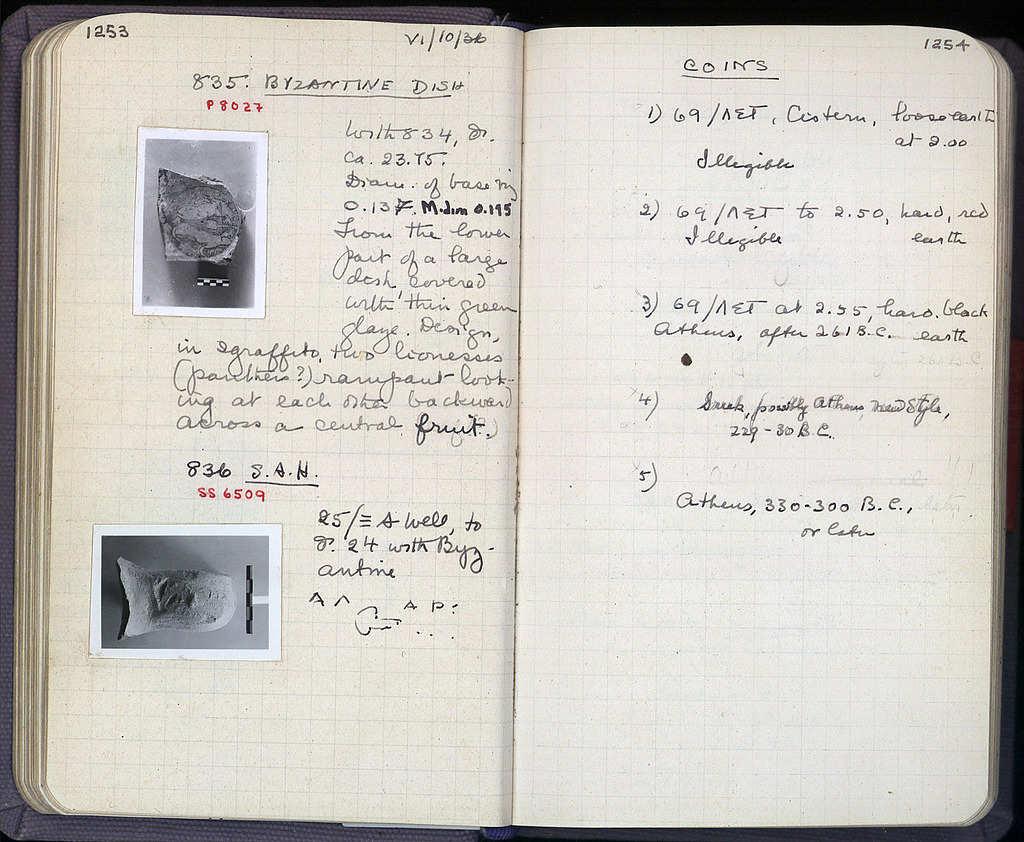 1253
VI/10/36
835. BYZANTINE DISH
P 8027
With 834, Dr.
ca. 23.75.
Diam. of base ring
0.137. M.dim 0.195
From the lower
part of a large
dish, covered
with thin green
glaze. Design,
in sgraffito, two lionesses
(panthers?) rampant look-
ing at each other backward
across a central fruit.)
836 S.A.H.
SS 6509
25/Ξ A Well, to
Dr. 24 with Byz-
antine
Α Λ Α Ρ :
. . .
1254
COINS
1) 69/ΛΣΤ, Cistern, loose earth
at 2.00
Illegible
2) 69/ΛΣΤ to 2.50, hard, red
Illegible earth
3) 69/ΛΣΤ at 2.55, hard. black
Athens, after 261 B.C. earth
4) Greek, possibly Athens New Style,
229-30 B.C.
5)
Athens, 330-300 B.C.,
or later